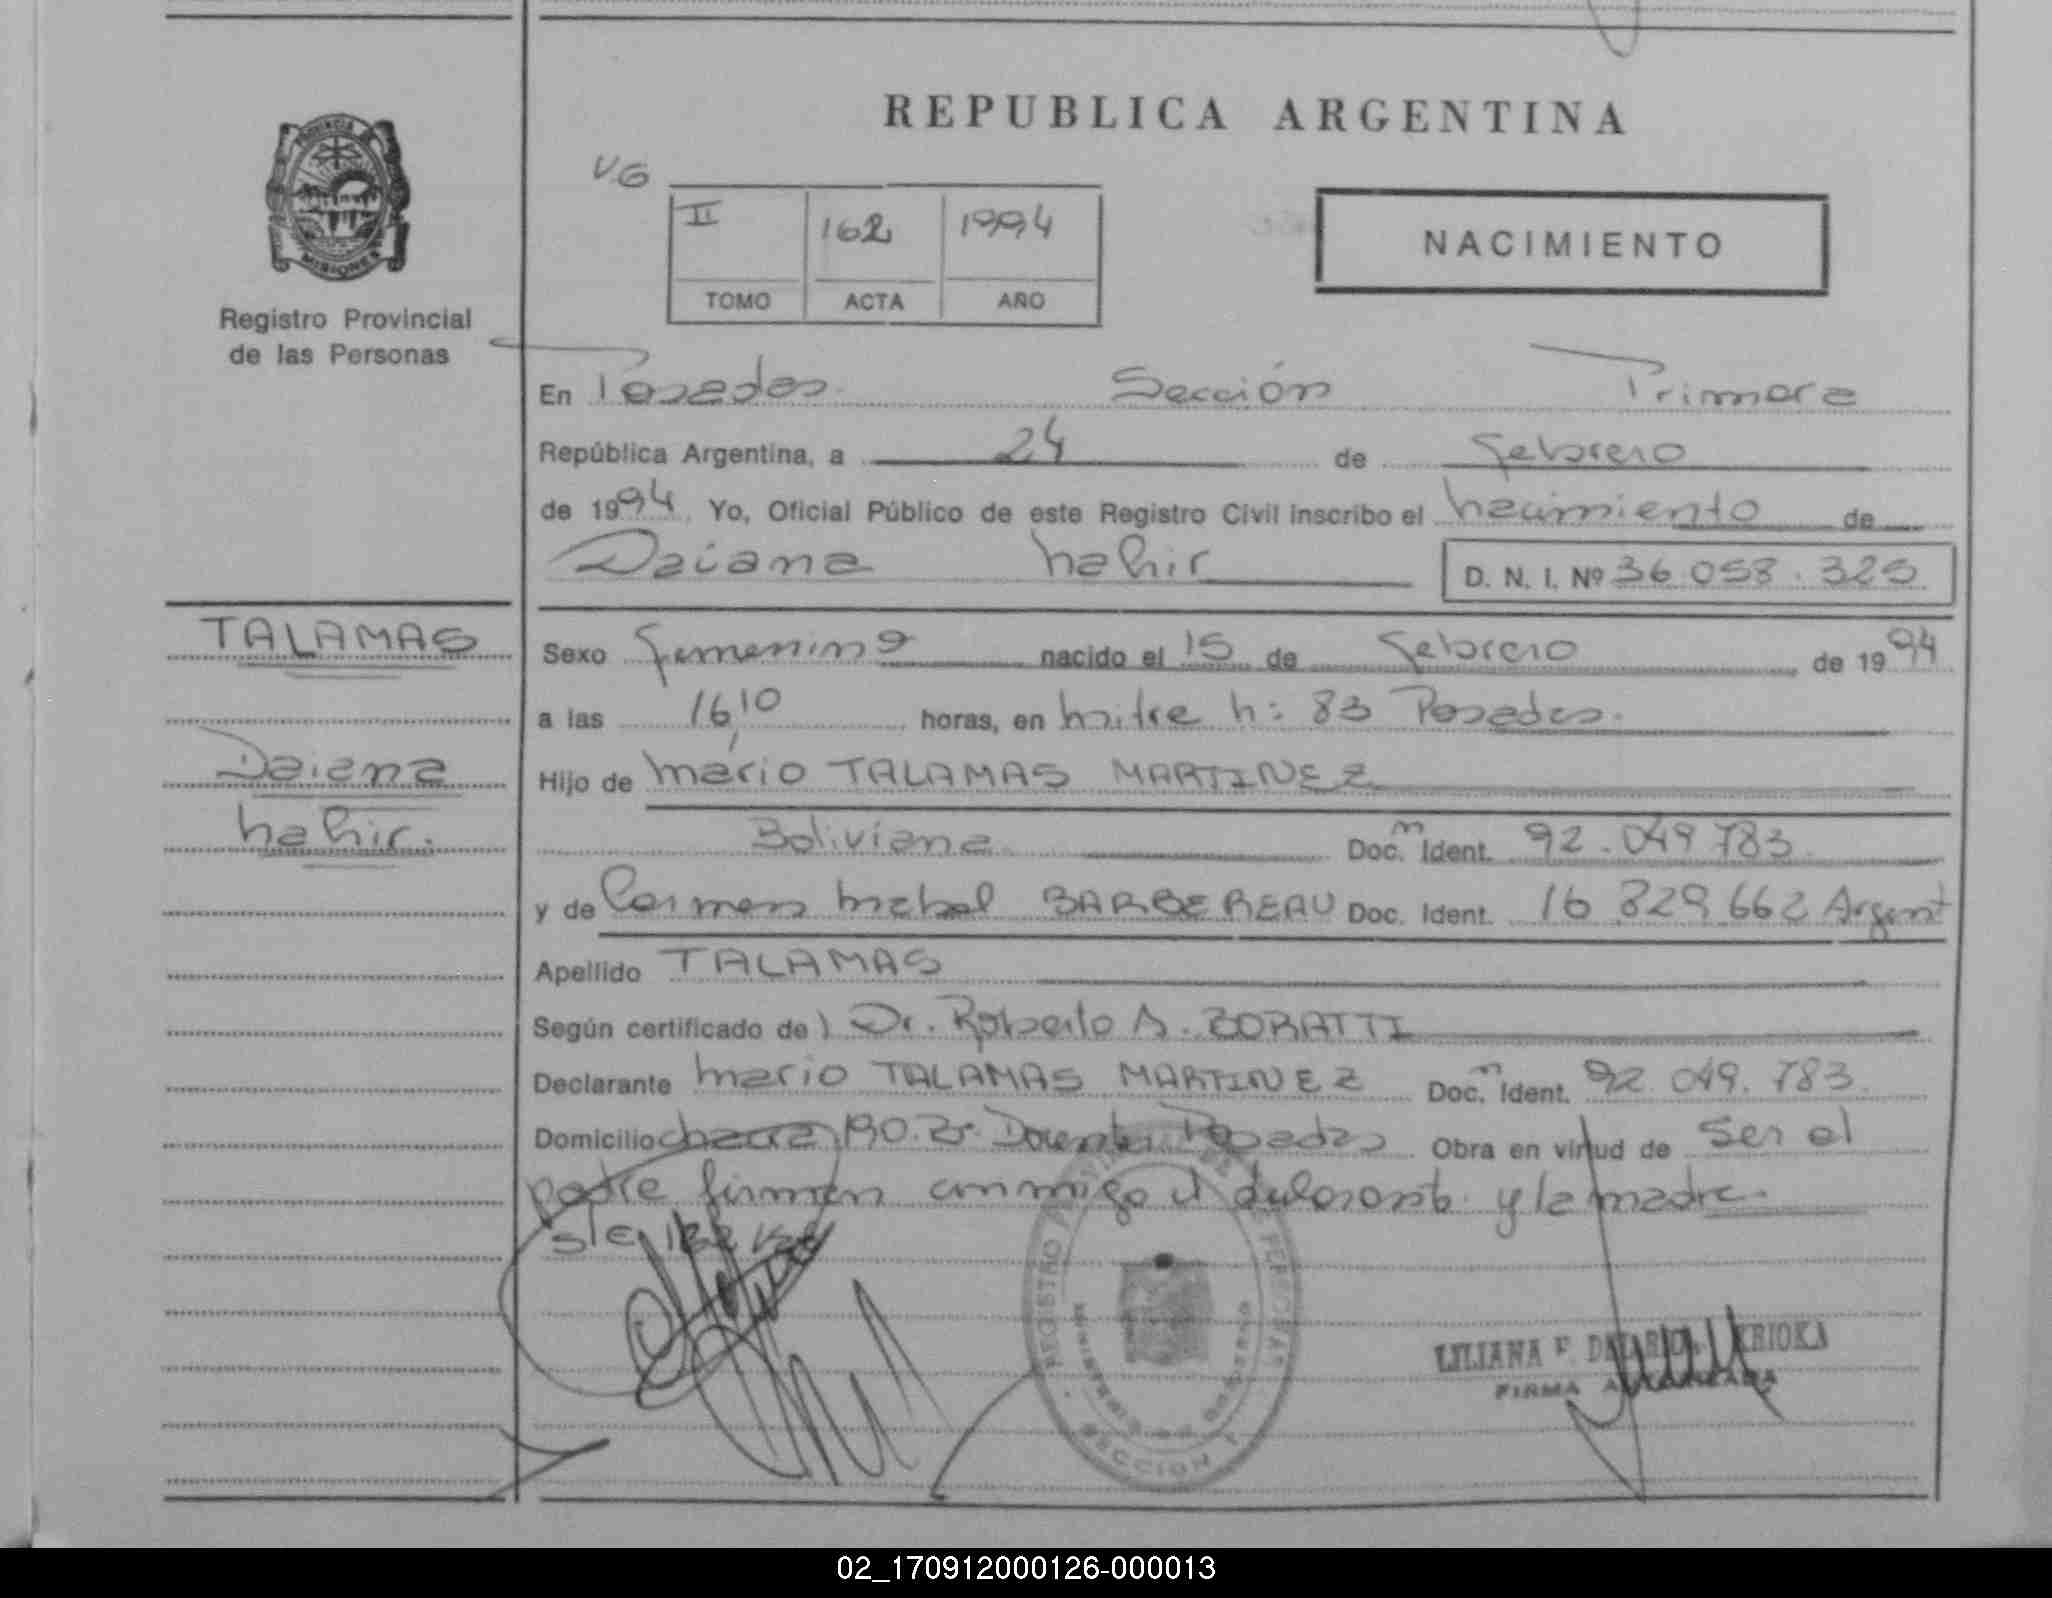 REPUBLICA ARGENTINA
PROVINCIA
MISIONES
Registro Provincial
de las Personas
VG
II 162 1994
TOMO ACTA AÑO
NACIMIENTO
En Posadas Sección Primera
República Argentina, a 24 de febrero
de 1994. Yo, Oficial Público de este Registro Civil inscribo el nacimiento de
Daiana Nahir D. N. I. Nº 36.058.325
TALAMAS
Daiana
Nahir.
Sexo femenino nacido el 15 de febrero de 1994
a las 16,10 horas, en Mitre N: 83 Posadas.
Hijo de Mario TALAMAS MARTINEZ
Boliviana Doc. Ident. 92.049.783
y de Carmen Mabel BARBEREAU Doc. Ident. 16.829.662 Argent
Apellido TALAMAS
Según certificado de) Dr. Roberto A. ZORATTI
Declarante Mario TALAMAS MARTINEZ Doc. Ident. 92.049.783
Domicilio chacra 190. Docente Posadas Obra en virtud de Ser el
padre firman conmigo el declarante y la madre.
REGISTRO PERSONAS
SECCION 1
LILIANA F.
FIRMA AUTORIZADA
02_170912000126-000013